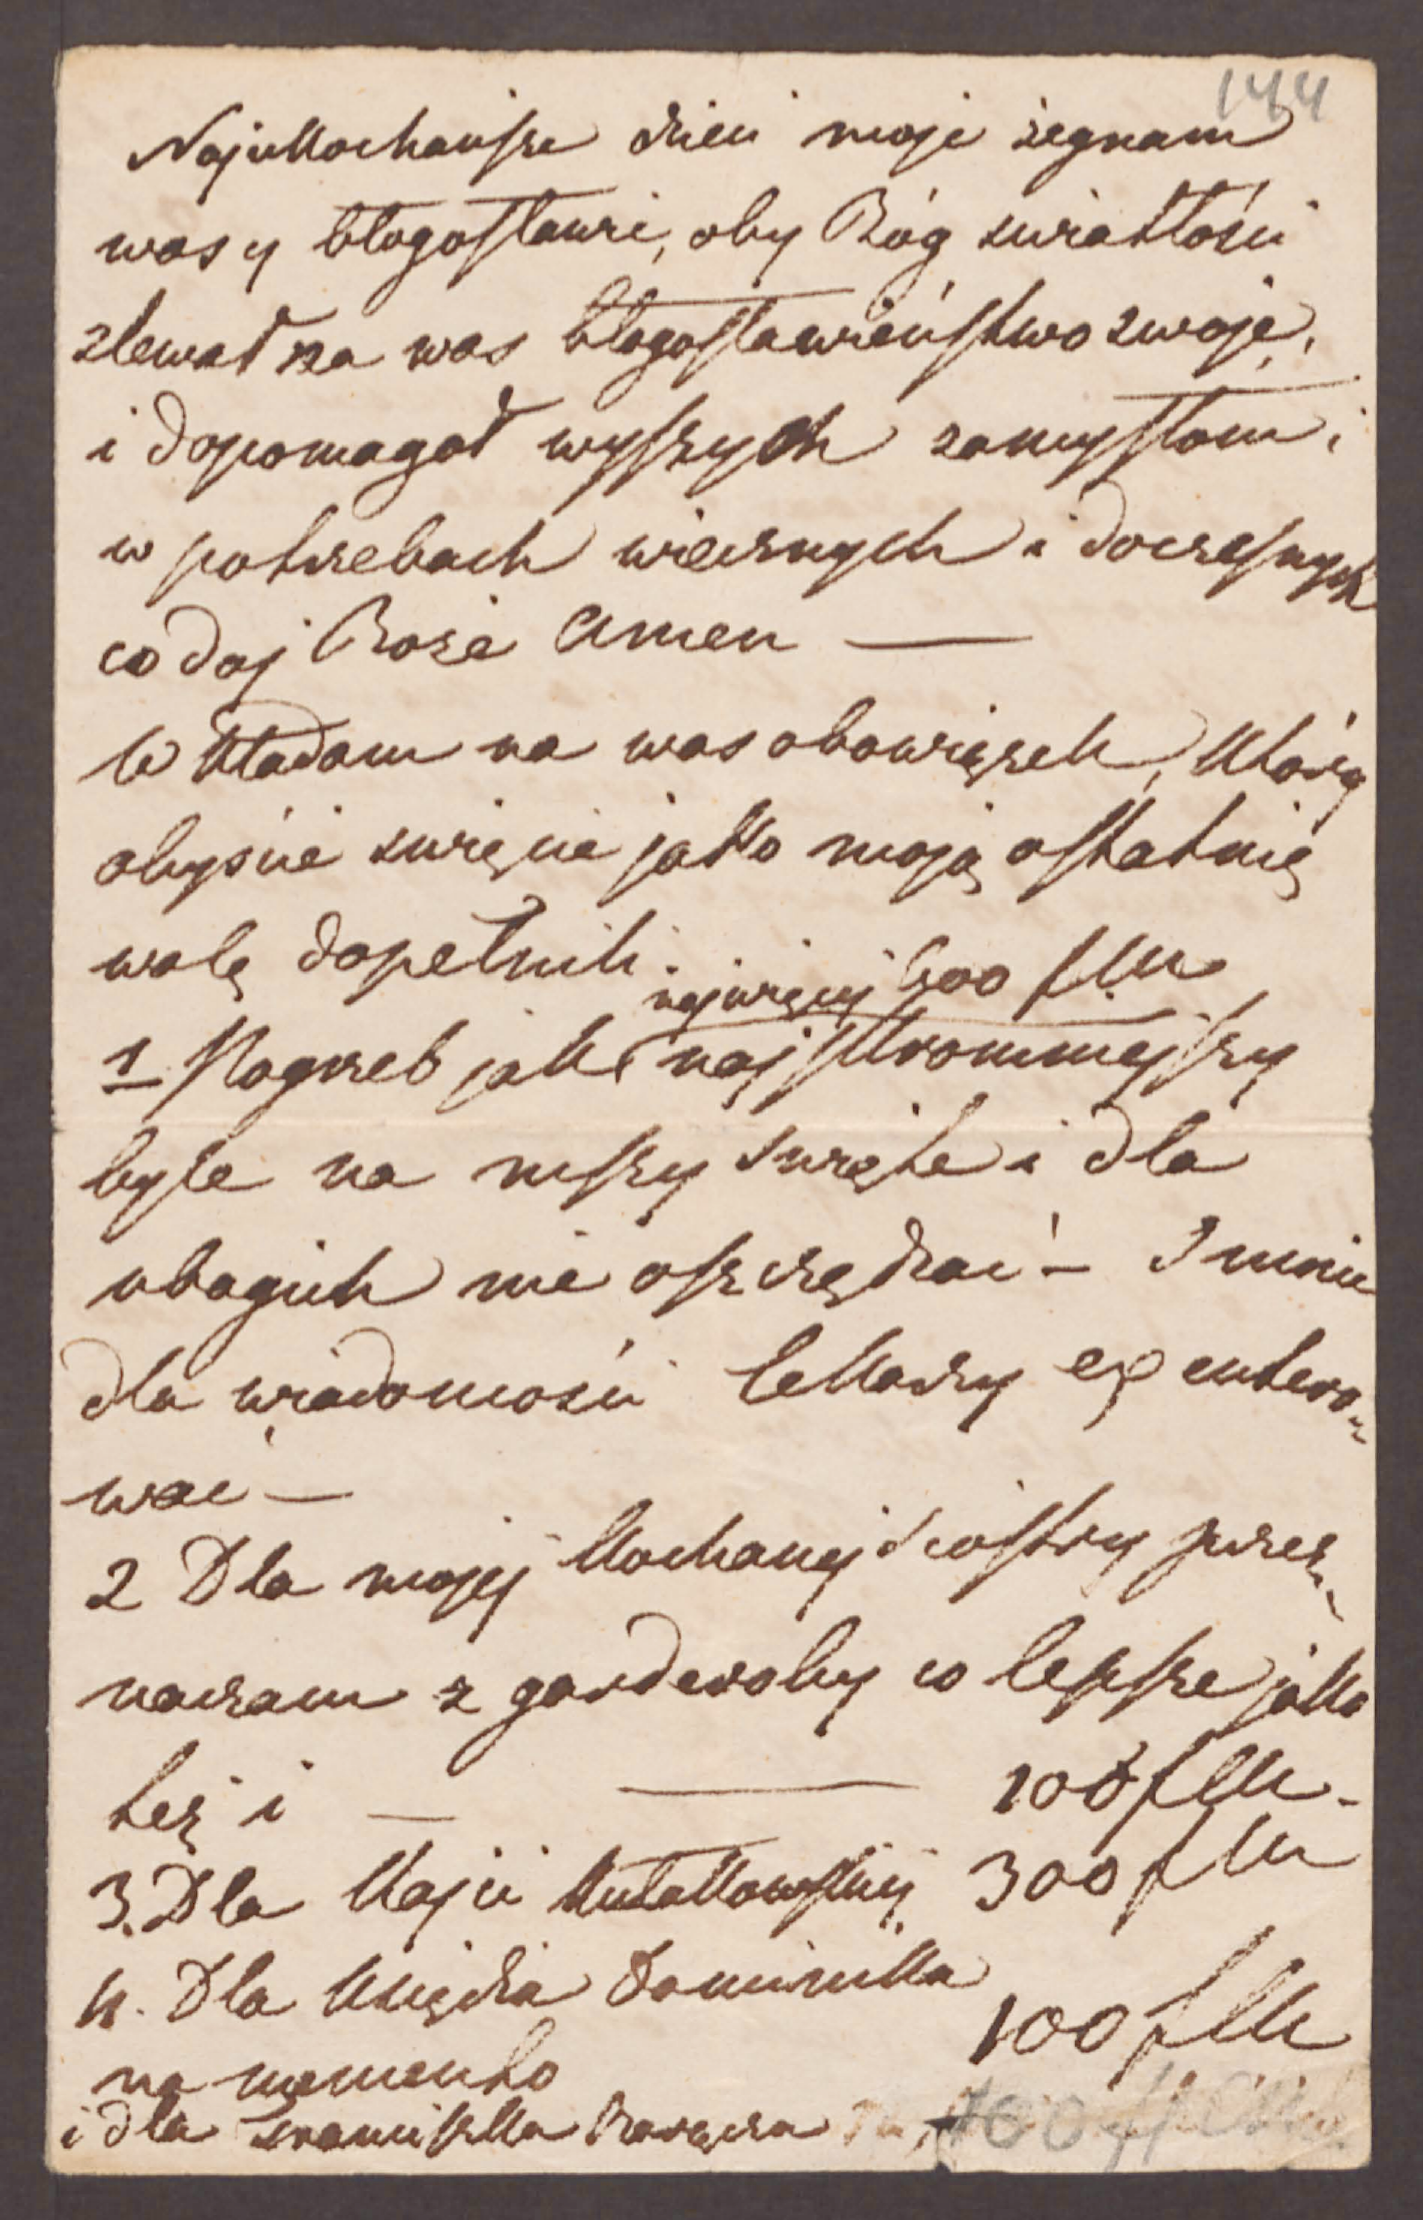 144
Najukochańsze dzieci moje żegnam
was y błogosławie, oby Bóg światłości
zlewał na was błogosławieństwo swoje,
i dopomagał wyszych zamysłom i
w potrzebach wiecznych i doczesnych
co daj Boże Amen —
Wkładam na was obowiązek, który
abyście święcie jako moją ostatnię
wolę dopełnili.
najwięcy 500 f M
1 Pogrzeb jak najskromniejszy
byle na mszy święte i dla
ubogich nie oszczędzać — I mnie
dla wiadomości lekarzy exentero-
wać —
2 Dla mojej kochanej siostry prze-
naczam z garderoby co lepsze jako
też i — — 100 f M -
3. Dla Kajci Kułakowskiej 300 f M
4. Dla księdza Dominika
100 f M
na memento
i dla Franciszka Barącza 100